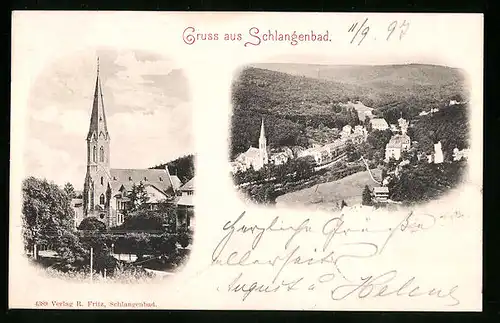 Gruss aus Schlangenbad.
11/9 97
Herzliche Grüße
allerseits
August u Helene
4389 Verlag R. Fritz, Schlangenbad.